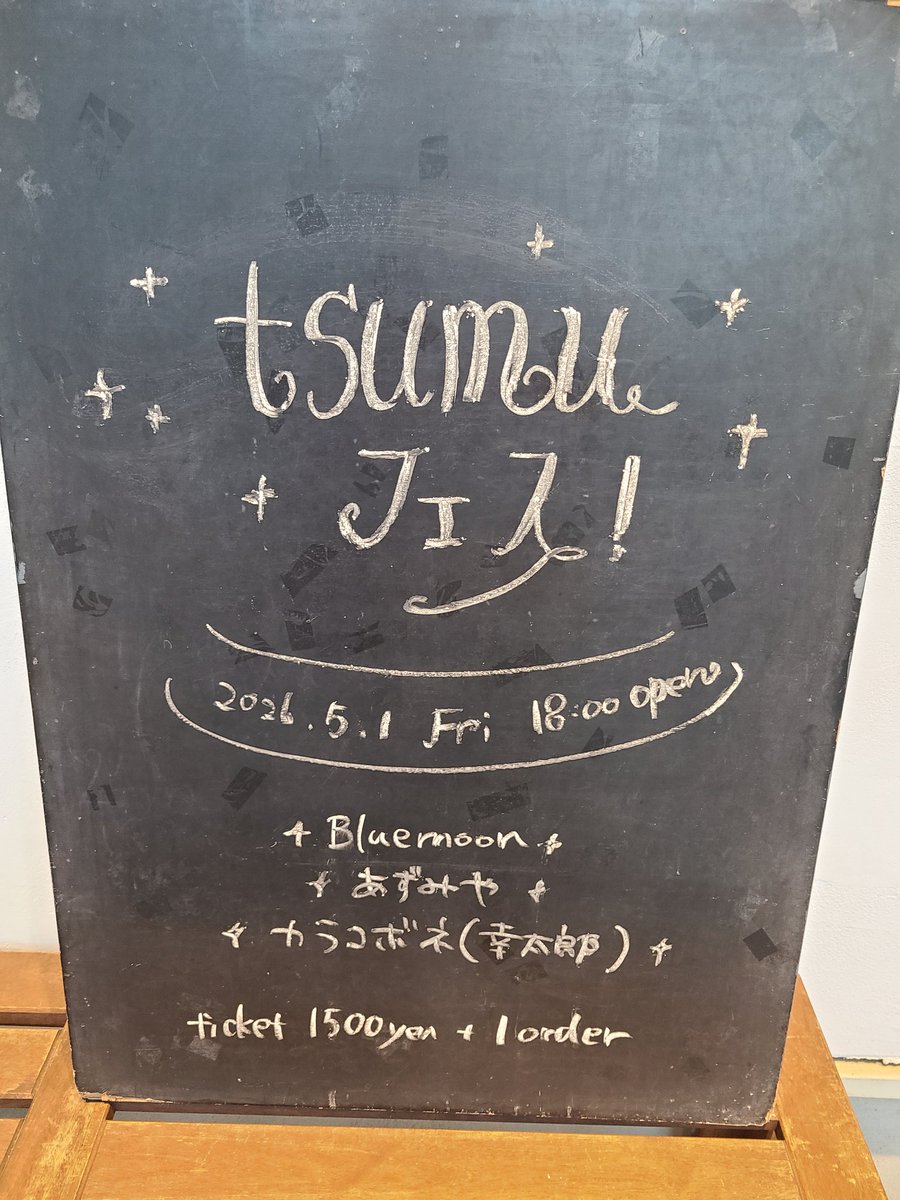 tsumu
フェス!
2026.5.1 Fri 18:00 open
Bluemoon
あずみや
カラコボネ(幸太郎)
ticket 1500yen + 1 order